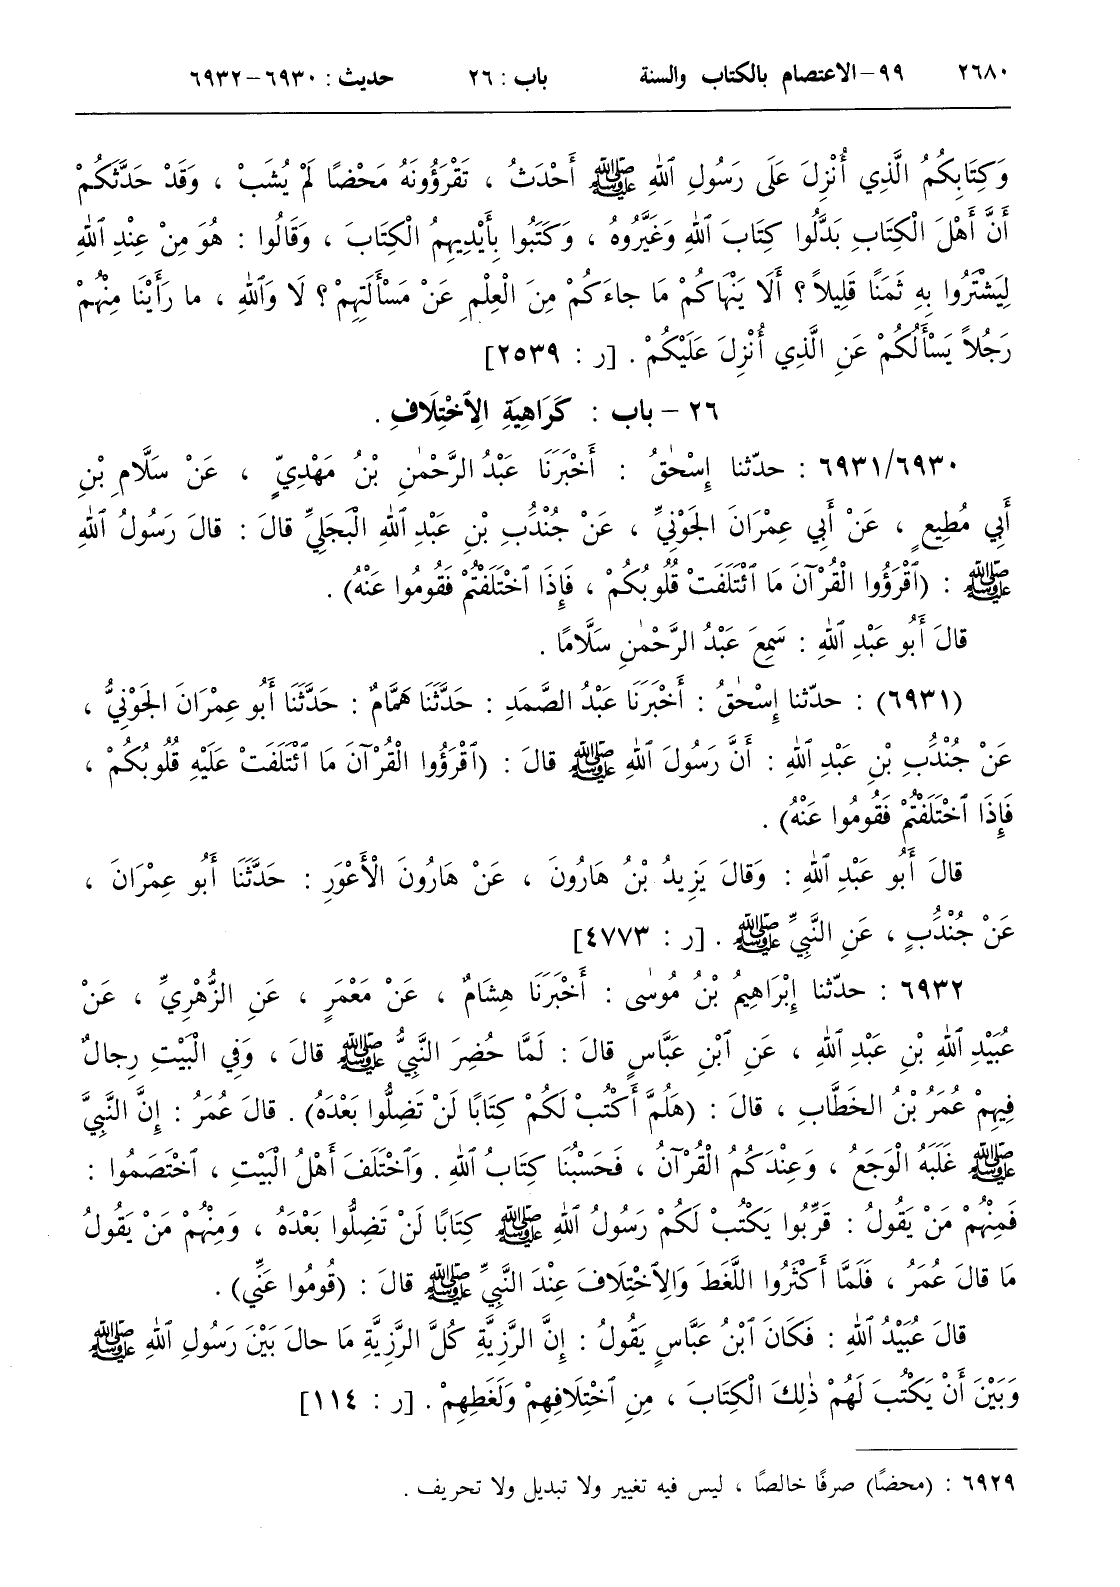 ٢٦٨٠ ٩٩-الاعتصام بالكتاب والسنة باب : ٢٦ حديث : ٦٩٣٠-٦٩٣٢
وَكِتَابِكُمُ الَّذِي أُنْزِلَ عَلَى رَسُولِ ٱللهِ ﷺ أَحْدَثُ ، تَقْرَؤُونَهُ مَحْضًا لَمْ يُشَبْ ، وَقَدْ حَدَّثَكُمْ
أَنَّ أَهْلَ الْكِتَابِ بَدَّلُوا كِتَابَ ٱللهِ وَغَيَّرُوهُ ، وَكَتَبُوا بِأَيْدِيهِمُ الْكِتَابَ ، وَقَالُوا : هُوَ مِنْ عِنْدِ ٱللهِ
لِيَشْتَرُوا بِهِ ثَمَنًا قَلِيلاً ؟ أَلَا يَنْهَاكُمْ مَا جاءَكُمْ مِنَ الْعِلْمِ عَنْ مَسْأَلَتِهِمْ ؟ لَا وَٱللهِ ، ما رَأَيْنَا مِنْهُمْ
رَجُلاً يَسْأَلُكُمْ عَنِ الَّذِي أُنْزِلَ عَلَيْكُمْ . [ر : ٢٥٣٩]
٢٦ – باب : كَرَاهِيَةِ الِٱخْتِلَافِ .
٦٩٣١/٦٩٣٠ : حدّثنا إِسْحٰقُ : أَخْبَرَنَا عَبْدُ الرَّحْمٰنِ بْنُ مَهْدِيٍّ ، عَنْ سَلَّامِ بْنِ
أَبِي مُطِيعٍ ، عَنْ أَبِي عِمْرَانَ الجَوْنِيِّ ، عَنْ جُنْدُبِ بْنِ عَبْدِ ٱللهِ الْبَجَلِيِّ قالَ : قالَ رَسُولُ ٱللهِ
ﷺ : (ٱقْرَؤُوا الْقُرْآنَ مَا ٱئْتَلَفَتْ قُلُوبُكُمْ ، فَإِذَا ٱخْتَلَفْتُمْ فَقُومُوا عَنْهُ) .
قالَ أَبُو عَبْدِ ٱللهِ : سَمِعَ عَبْدُ الرَّحْمٰنِ سَلَّامًا .
(٦٩٣١) : حدّثنا إِسْحٰقُ : أَخْبَرَنَا عَبْدُ الصَّمَدِ : حَدَّثَنَا هَمَّامٌ : حَدَّثَنَا أَبُو عِمْرَانَ الجَوْنِيُّ ،
عَنْ جُنْدُبِ بْنِ عَبْدِ ٱللهِ : أَنَّ رَسُولَ ٱللهِ ﷺ قالَ : (ٱقْرَؤُوا الْقُرْآنَ مَا ٱئْتَلَفَتْ عَلَيْهِ قُلُوبُكُمْ ،
فَإِذَا ٱخْتَلَفْتُمْ فَقُومُوا عَنْهُ) .
قالَ أَبُو عَبْدِ ٱللهِ : وَقالَ يَزِيدُ بْنُ هَارُونَ ، عَنْ هَارُونَ الْأَعْوَرِ : حَدَّثَنَا أَبُو عِمْرَانَ ،
عَنْ جُنْدُبٍ ، عَنِ النَّبِيِّ ﷺ . [ر : ٤٧٧٣]
٦٩٣٢ : حدّثنا إِبْرَاهِيمُ بْنُ مُوسٰى : أَخْبَرَنَا هِشَامٌ ، عَنْ مَعْمَرٍ ، عَنِ الزُّهْرِيِّ ، عَنْ
عُبَيْدِ ٱللهِ بْنِ عَبْدِ ٱللهِ ، عَنِ ٱبْنِ عَبَّاسٍ قالَ : لَمَّا حُضِرَ النَّبِيُّ ﷺ قالَ ، وَفِي الْبَيْتِ رِجالٌ
فِيهِمْ عُمَرُ بْنُ الخَطَّابِ ، قالَ : (هَلُمَّ أَكْتُبْ لَكُمْ كِتَابًا لَنْ تَضِلُّوا بَعْدَهُ) . قالَ عُمَرُ : إِنَّ النَّبِيَّ
ﷺ غَلَبَهُ الْوَجَعُ ، وَعِنْدَكُمُ الْقُرْآنُ ، فَحَسْبُنَا كِتَابُ ٱللهِ . وَٱخْتَلَفَ أَهْلُ الْبَيْتِ ، ٱخْتَصَمُوا :
فَمِنْهُمْ مَنْ يَقُولُ : قَرِّبُوا يَكْتُبْ لَكُمْ رَسُولُ ٱللهِ ﷺ كِتَابًا لَنْ تَضِلُّوا بَعْدَهُ ، وَمِنْهُمْ مَنْ يَقُولُ
مَا قالَ عُمَرُ ، فَلَمَّا أَكْثَرُوا اللَّغَطَ وَالِٱخْتِلَافَ عِنْدَ النَّبِيِّ ﷺ قالَ : (قُومُوا عَنِّي) .
قالَ عُبَيْدُ ٱللهِ : فَكَانَ ٱبْنُ عَبَّاسٍ يَقُولُ : إِنَّ الرَّزِيَّةَ كُلَّ الرَّزِيَّةِ مَا حالَ بَيْنَ رَسُولِ ٱللهِ ﷺ
وَبَيْنَ أَنْ يَكْتُبَ لَهُمْ ذٰلِكَ الْكِتَابَ ، مِنِ ٱخْتِلَافِهِمْ وَلَغَطِهِمْ . [ر : ١١٤]
٦٩٢٩ : (محضًا) صرفًا خالصًا ، ليس فيه تغيير ولا تبديل ولا تحريف .